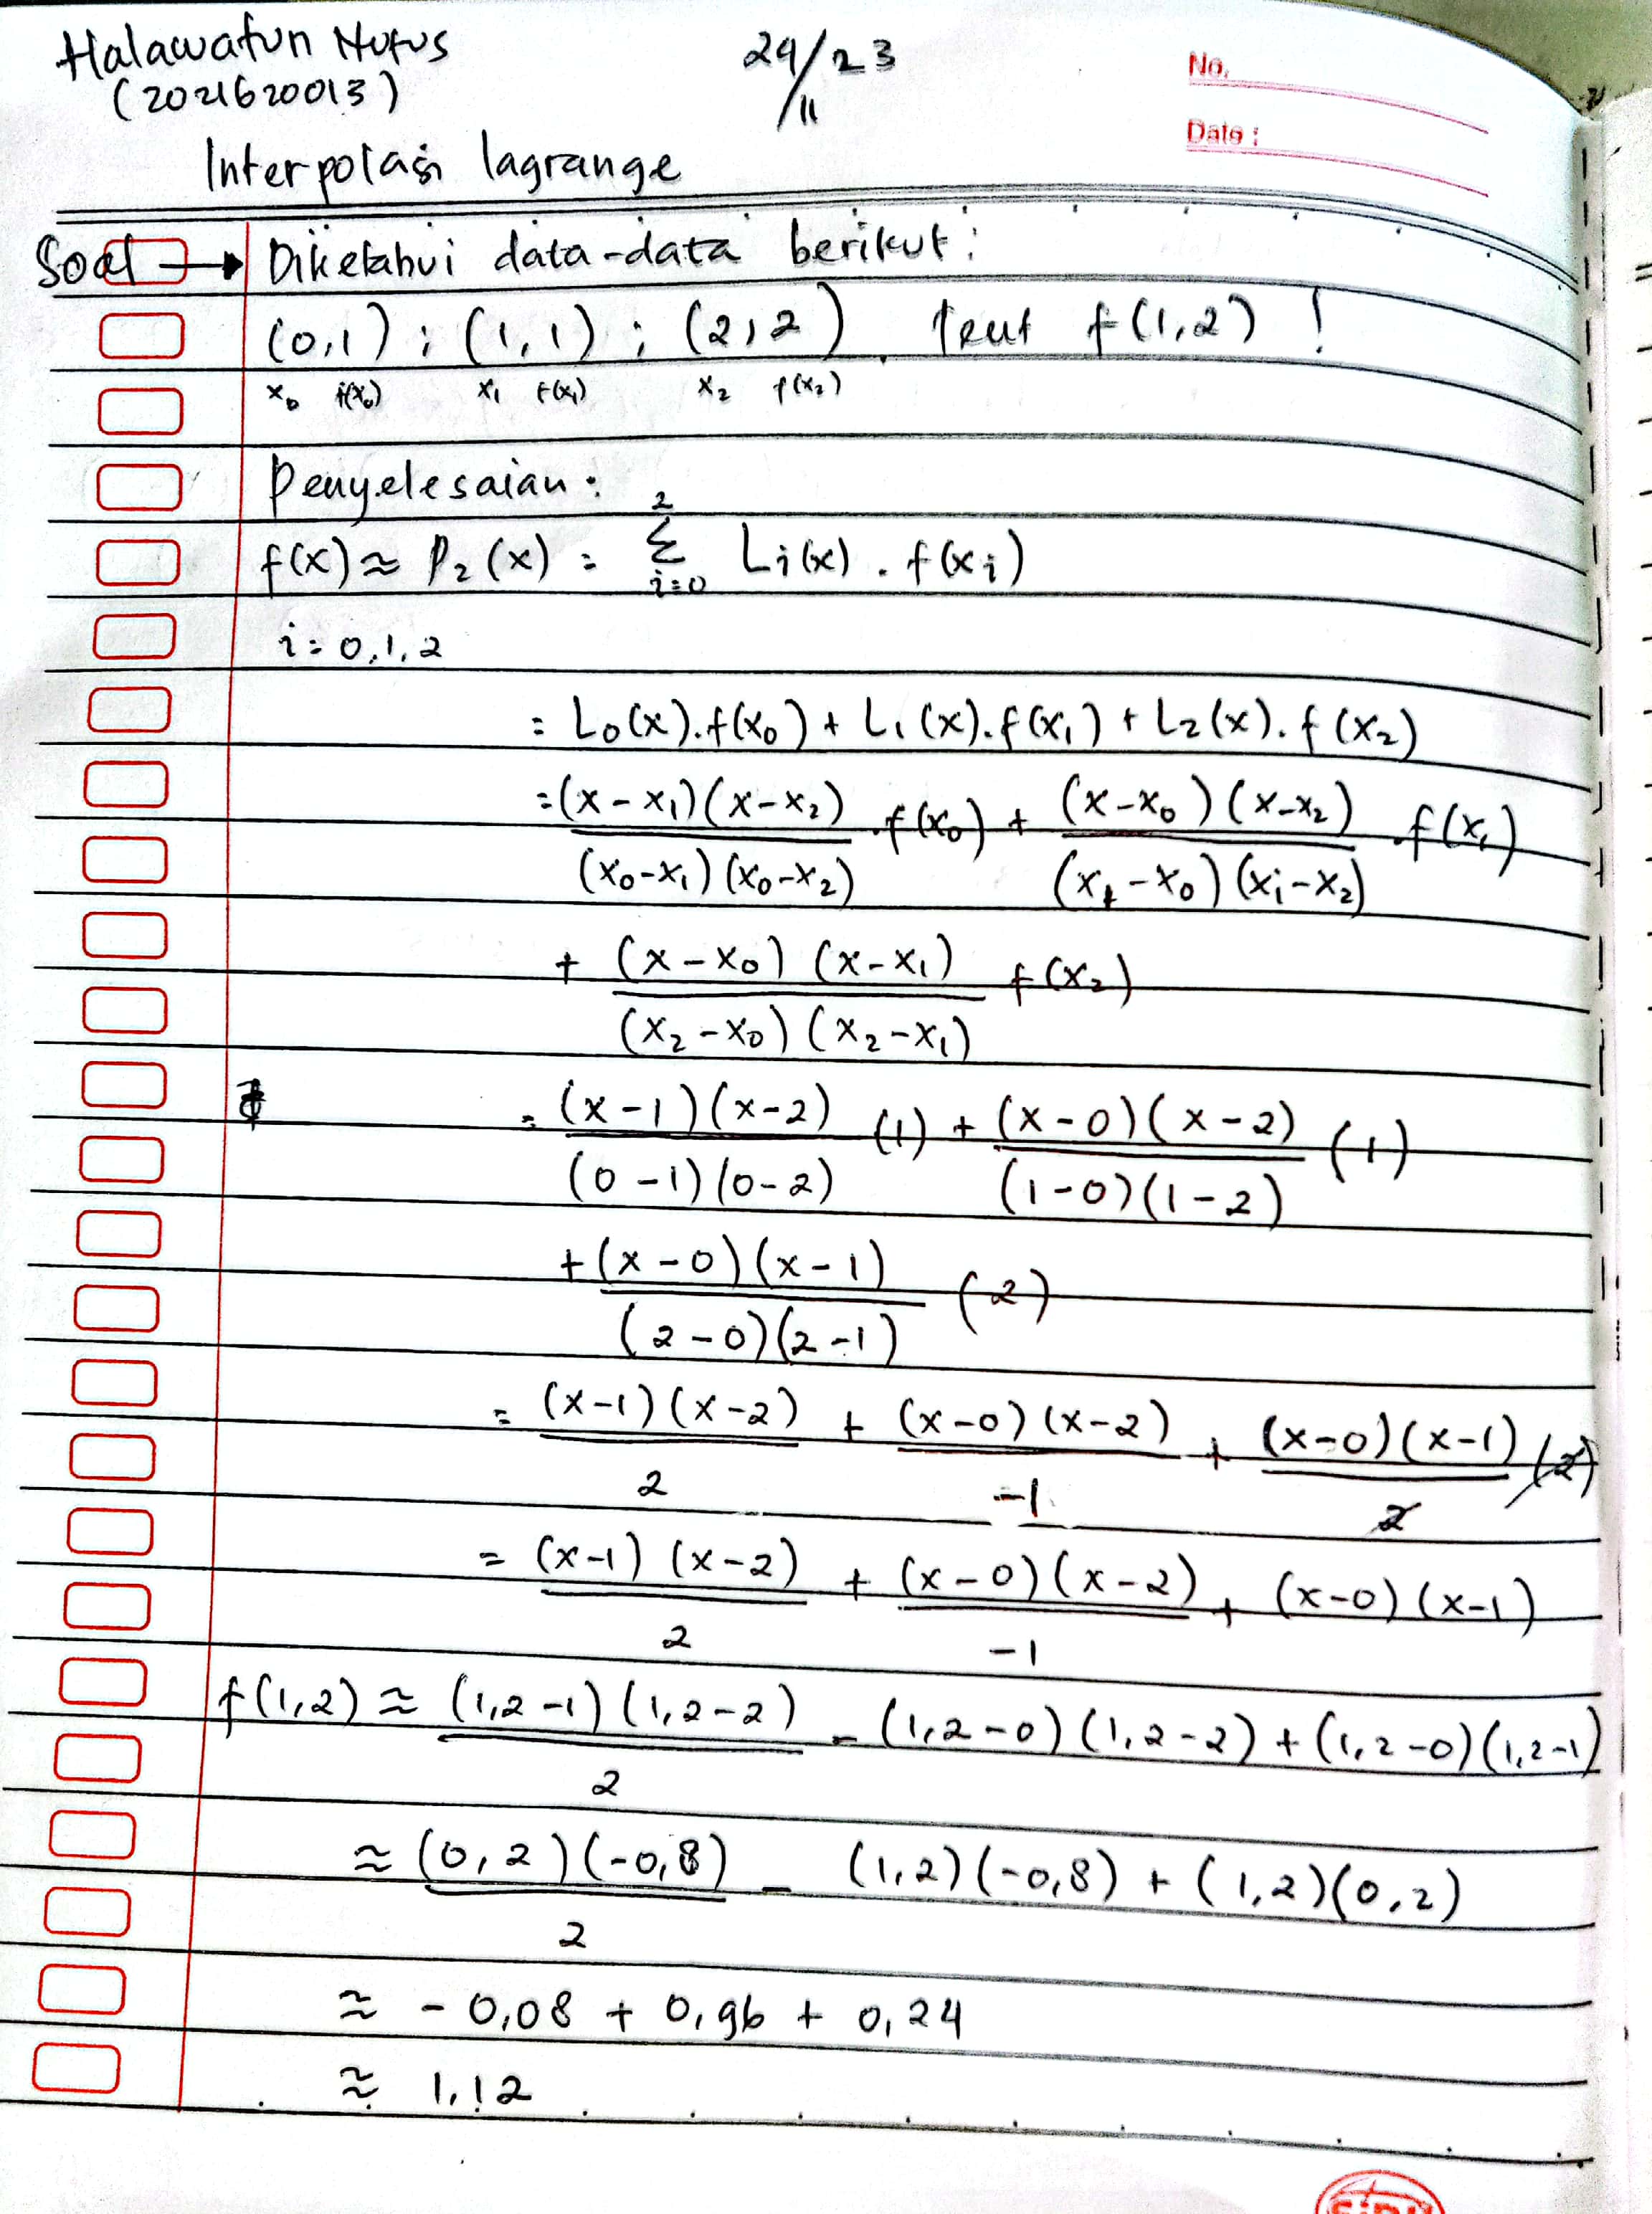 Halawatun Nufus 24/11 23
(2021620013)
No.
Date :
Interpolasi lagrange
Soal → Diketahui data-data berikut :
(0,1) ; (1,1) ; (2,2). Tent f(1,2) !
x₀ f(x₀) x₁ f(x₁) x₂ f(x₂)
Penyelesaian :
f(x) ≈ P₂(x) = Σ_{i=0}^{2} Li(x) . f(xi)
i = 0,1,2
= L₀(x).f(x₀) + L₁(x).f(x₁) + L₂(x).f(x₂)
= (x-x₁)(x-x₂) / (x₀-x₁)(x₀-x₂) .f(x₀) + (x-x₀)(x-x₂) / (x₁-x₀)(x₁-x₂) .f(x₁)
+ (x-x₀)(x-x₁) / (x₂-x₀)(x₂-x₁) f(x₂)
= (x-1)(x-2) / (0-1)(0-2) (1) + (x-0)(x-2) / (1-0)(1-2) (1)
+ (x-0)(x-1) / (2-0)(2-1) (2)
= (x-1)(x-2) / 2 + (x-0)(x-2) / -1 + (x-0)(x-1) / 2 (2)
= (x-1)(x-2) / 2 + (x-0)(x-2) / -1 + (x-0)(x-1)
f(1,2) ≈ (1,2-1)(1,2-2) / 2 - (1,2-0)(1,2-2) + (1,2-0)(1,2-1)
≈ (0,2)(-0,8) / 2 - (1,2)(-0,8) + (1,2)(0,2)
≈ -0,08 + 0,96 + 0,24
≈ 1,12